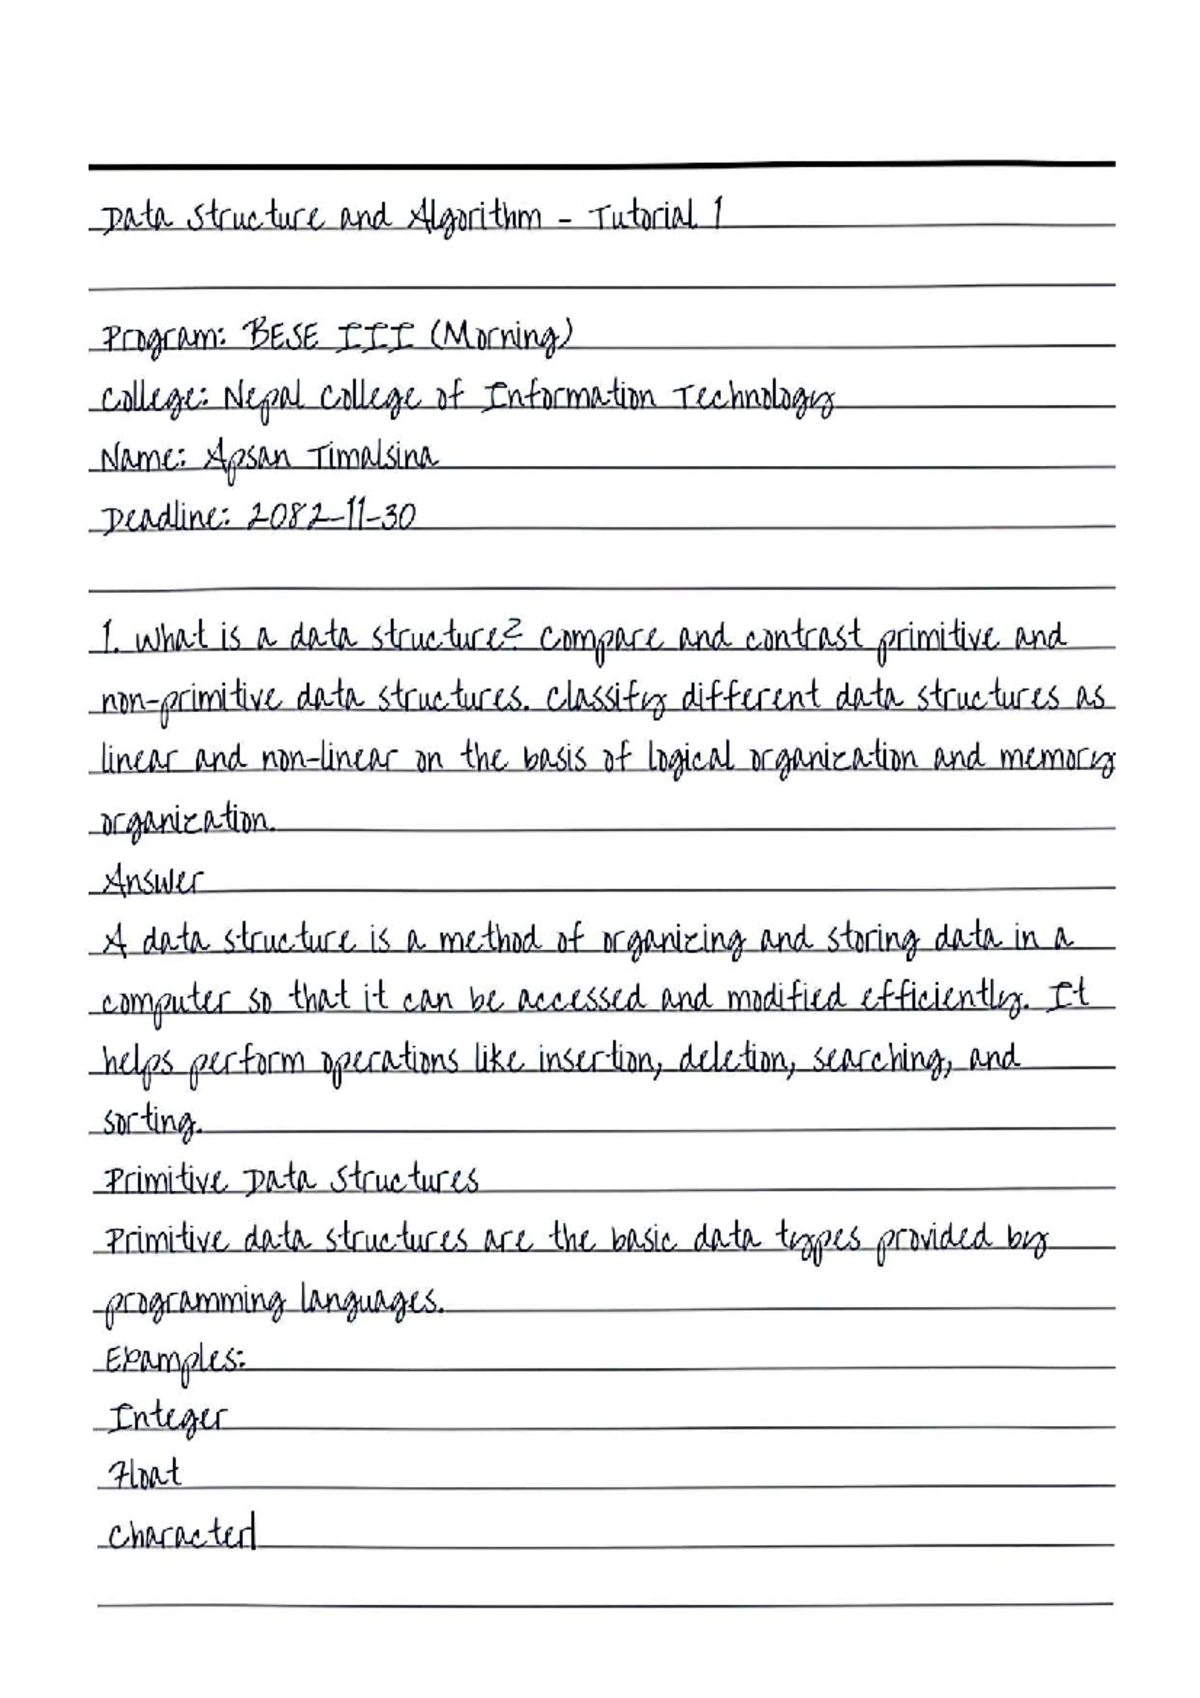 Data Structure and Algorithm - Tutorial 1
Program: BESE III (Morning)
College: Nepal College of Information Technology
Name: Apsan Timalsina
Deadline: 2082-11-30
1. What is a data structure? Compare and contrast primitive and
non-primitive data structures. Classify different data structures as
linear and non-linear on the basis of logical organization and memory
organization.
Answer
A data structure is a method of organizing and storing data in a
computer so that it can be accessed and modified efficiently. It
helps perform operations like insertion, deletion, searching, and
sorting.
Primitive Data Structures
Primitive data structures are the basic data types provided by
programming languages.
Examples:
Integer
Float
Character